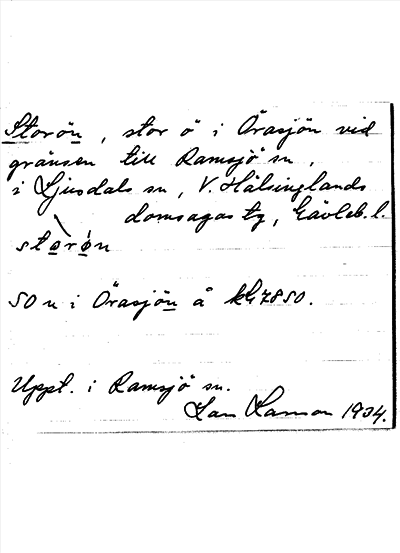 Storön, stor ö i Örasjön vid
gränsen till Ramsjö sn,
i Ljusdals sn, V. Hälsinglands
domsagas tg, Gävleb. l.
storön
SO n i Örasjön å kG 7850.
Uppt. i Ramsjö sn.
1934.